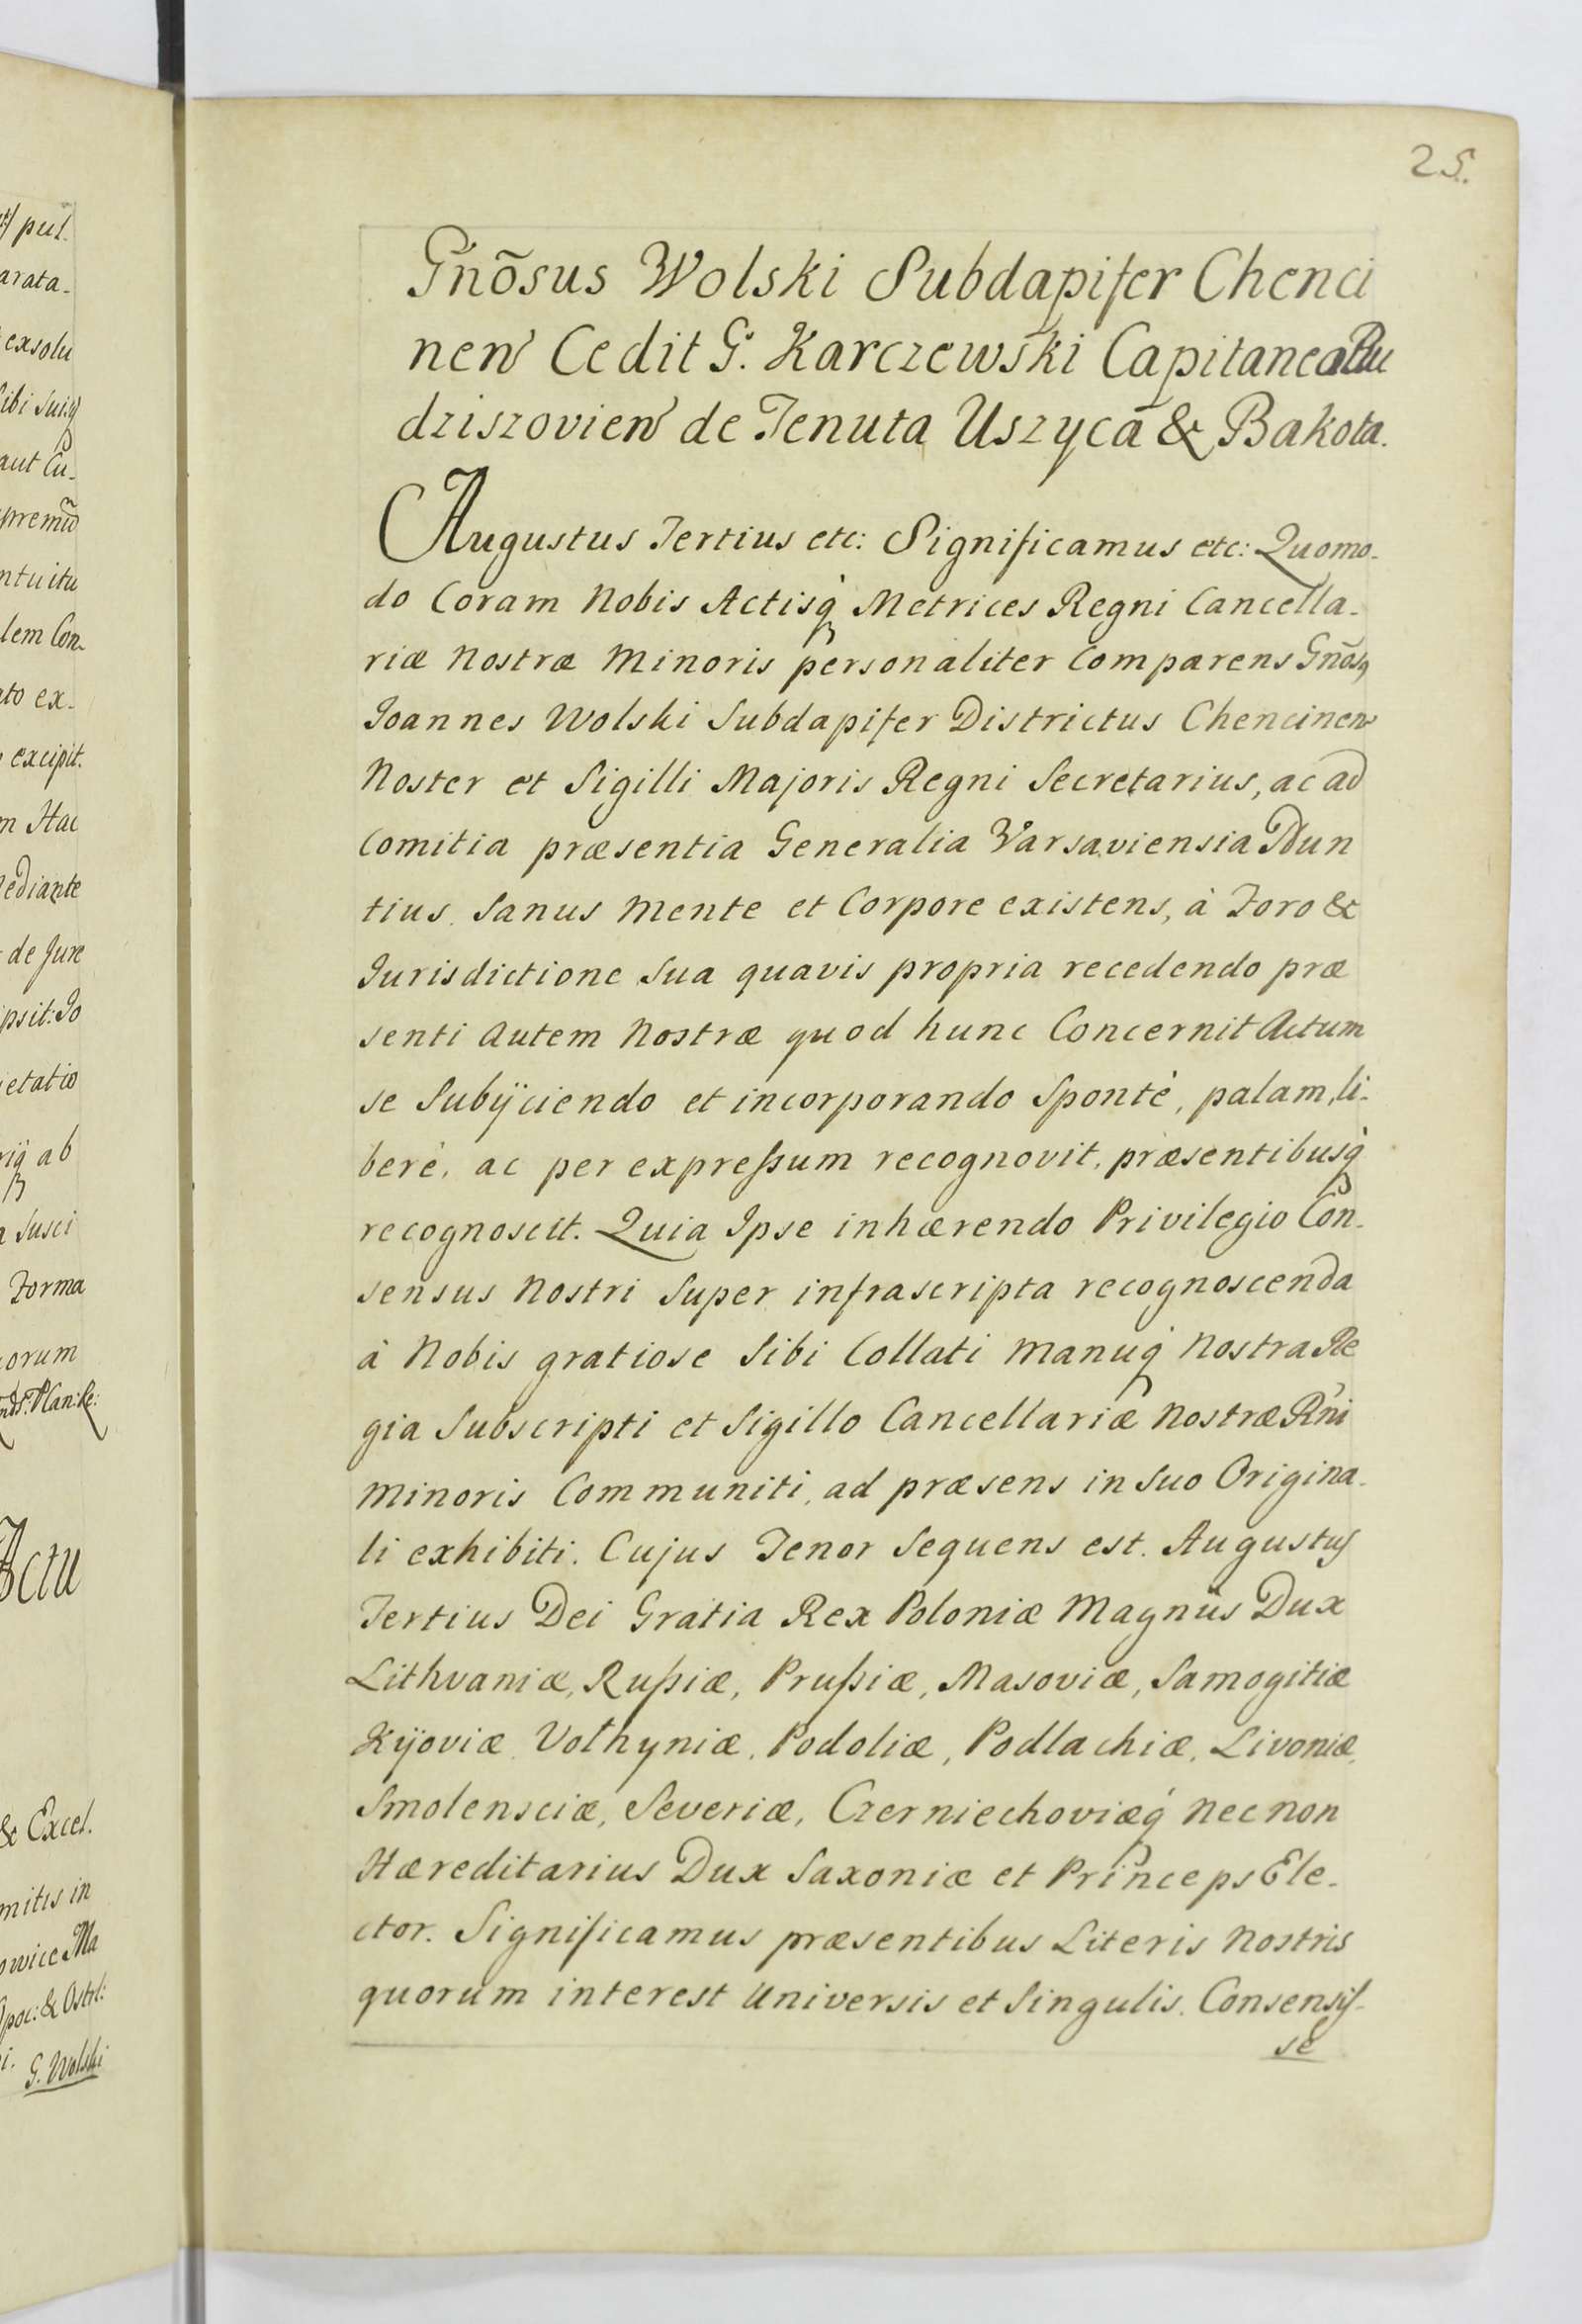 25.
Gnõsus Wolski Subdapifer Chenci
nen̄ Cedit G. Karczewski Capitaneo Bu
dziszovien̄ de Tenuta Uszyca & Bakota.
Augustus Tertius etc: Significamus etc: Quomo-
do Coram Nobis Actisq̀ Metrices Regni Cancella-
riæ Nostræ Minoris personaliter Comparens Gnõsq
Joannes Wolski Subdapifer Districtus Chencinen̄
Noster et Sigilli Majoris Regni Secretarius, ac ad
Comitia præsentia Generalia Varsaviensia Nun
tius Sanus Mente et Corpore existens, à Foro &
Jurisdictione Sua quavis propria recedendo præ
senti Autem Nostræ quod hunc Concernit Actum
se Subÿciendo et incorporando Spontè, palam, li-
berè, ac per expreſsum recognovit, præsentibusq̀
recognoscit. Quia Ipse inhærendo Privilegio Con-
sensus Nostri Super infrascripta recognoscenda
à Nobis gratiose Sibi Collati Manuq̀ Nostra Re
gia Subscripti et Sigillo Cancellariæ Nostræ Rn̄i
Minoris Communiti, ad præsens in Suo Origina-
li exhibiti. Cujus Tenor Sequens est. Augustus
Tertius Dei Gratia Rex Poloniæ Magnus Dux
Lithvaniæ, Ruſsiæ, Pruſsiæ, Masoviæ, Samogitiæ
Kÿoviæ, Volhyniæ, Podoliæ, Podlachiæ, Livoniæ,
Smolensciæ, Severiæ, Czerniechoviæq́ Necnon
Hæreditarius Dux Saxoniæ et Princeps Ele-
ctor. Significamus præsentibus Literis Nostris
quorum interest Universis et Singulis. Consensis-
se
pul.
arata-
exsolu
Sibi Suisq̀
aut Cu-
ntuitu
lem Con-
ato ex-
excipit.
m Hac
Mediante
de Jure
psit: Jo
etatio
ab
Susci
Forma
orum
Actu
& Excel.
mitis in
owice Ma
& Ostrl:
G. Wolski